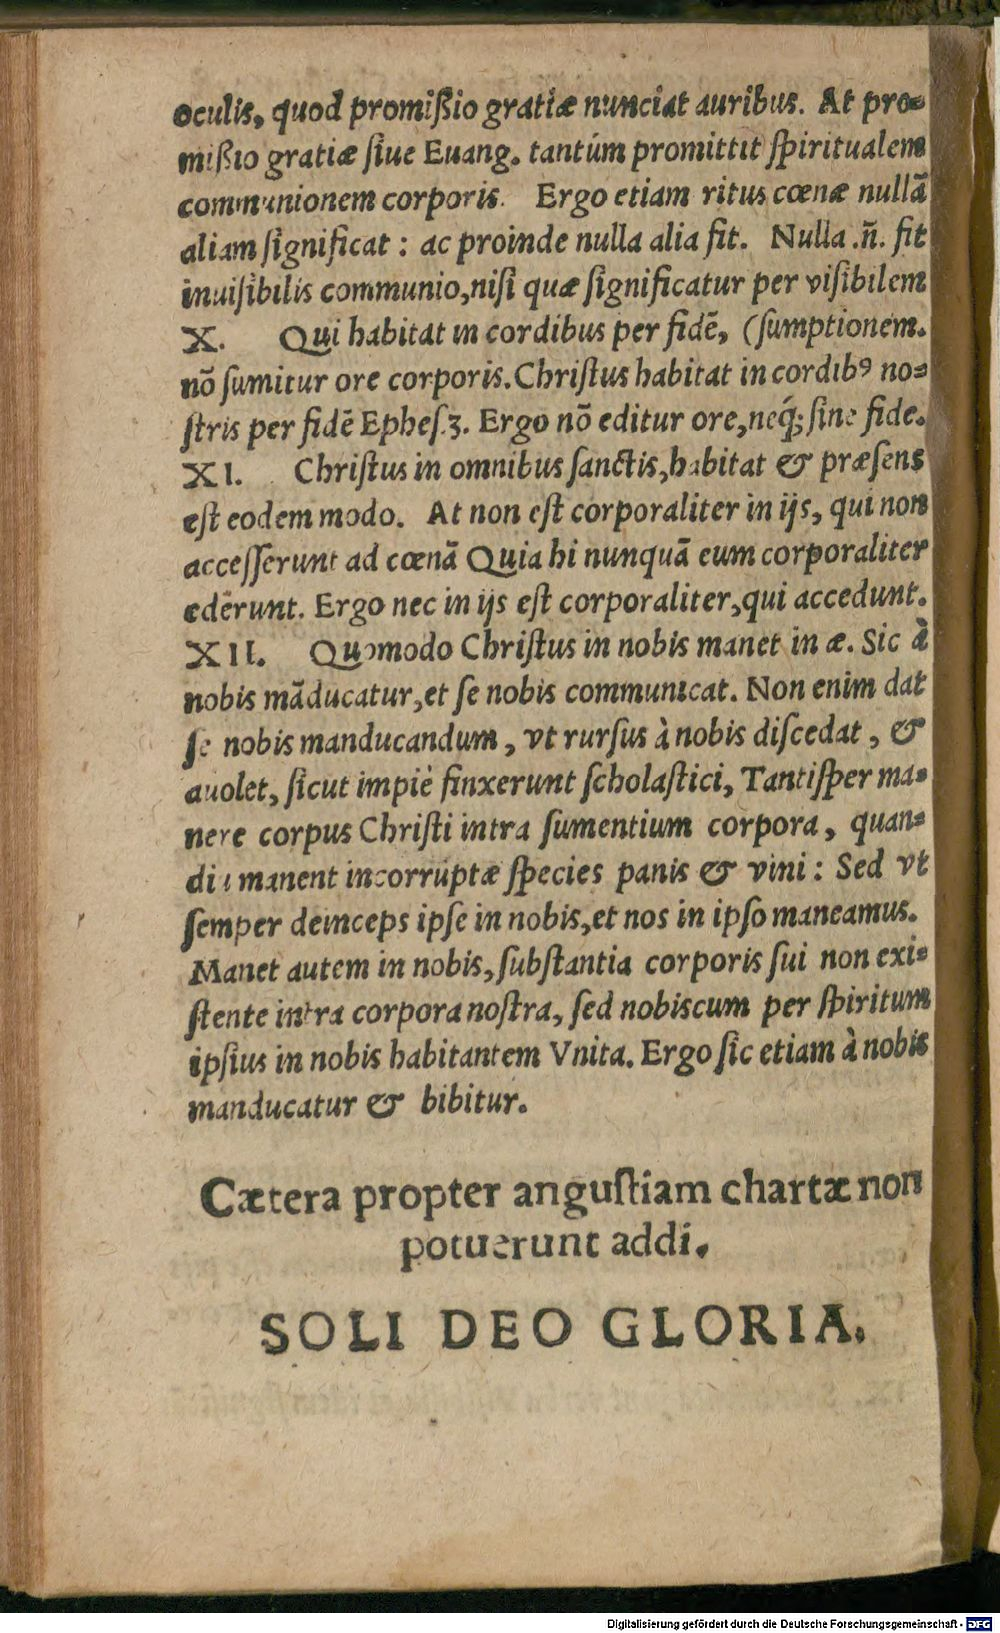 oculis, quod promißio gratiæ nunciat auribus. At pro=
mißio gratiæ ſiue Euang. tantúm promittit ſpiritualem
communionem corporis. Ergo etiam ritus cœnæ nullā
aliam ſignificat : ac proinde nulla alia fit. Nulla .n̄. fit
inuiſibilis communio,niſi quæ ſignificatur per viſibilem
X. Qui habitat in cordibus per fidē, (ſumptionem.
nō ſumitur ore corporis.Chriſtus habitat in cordibꝰ no=
ſtris per fidē Epheſ.3. Ergo nō editur ore,neq́; ſine fide.
XI. Chriſtus in omnibus ſanctis,habitat & præſens
eſt eodem modo. At non eſt corporaliter in ijs, qui non
acceſſerunt ad cœnā Quia hi nunquā eum corporaliter
ederunt. Ergo nec in ijs eſt corporaliter,qui accedunt.
XII. Quomodo Chriſtus in nobis manet in æ. Sic à
nobis māducatur,et ſe nobis communicat. Non enim dat
ſe nobis manducandum , vt rurſus à nobis diſcedat , &
auolet, ſicut impiè finxerunt ſcholaſtici, Tantiſper ma=
nere corpus Chriſti intra ſumentium corpora, quan=
diu manent incorruptæ ſpecies panis & vini : Sed vt
ſemper deinceps ipſe in nobis,et nos in ipſo maneamus.
Manet autem in nobis, ſubſtantia corporis ſui non exi=
ſtente intra corpora noſtra, ſed nobiscum per ſpiritum
ipſius in nobis habitantem Vnita. Ergo ſic etiam à nobis
manducatur & bibitur.
Cætera propter anguſtiam chartæ non
potuerunt addi.
SOLI DEO GLORIA.
Digitalisierung gefördert durch die Deutsche Forschungsgemeinschaft - DFG